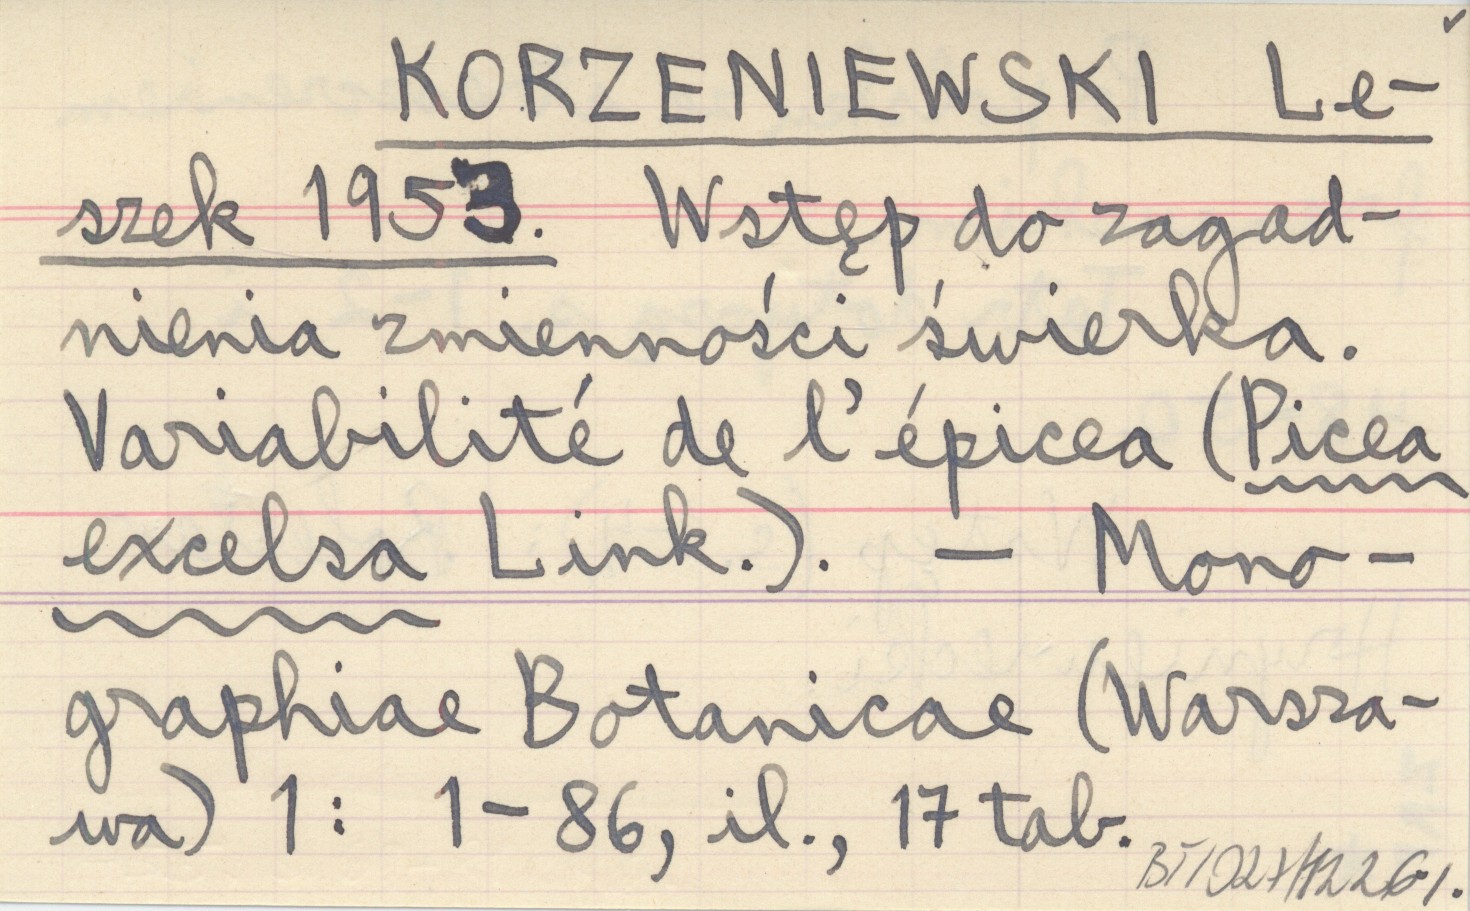 KORZENIEWSKI Le-
szek 1953. Wstęp do zagad-
nienia zmienności świerka.
Variabilité de l'épicea (Picea
excelsa Link.). — Mono-
graphiae Botanicae (Warsza-
wa) 1: 1-86, il., 17 tab.